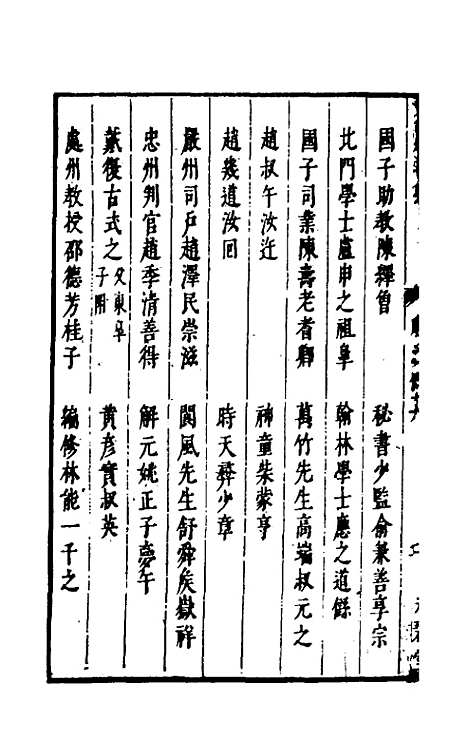 國子助教陳釋曾　秘書少監俞兼善享宗
北門學士盧申之祖皋　翰林學士應之道䌛
國子司業陳壽老耆卿　萬竹先生高端叔元之
趙叔午汝迕　神童柴蒙亨
趙幾道汝回　時天彝少章
嚴州司戶趙澤民崇滋　閬風先生舒舜矦嶽祥
忠州判官趙季清善得　解元姚正子夢午
戴復古式之父東皋子附　黃彥實叔英
處州教授邵德芳桂子　編修林能一千之